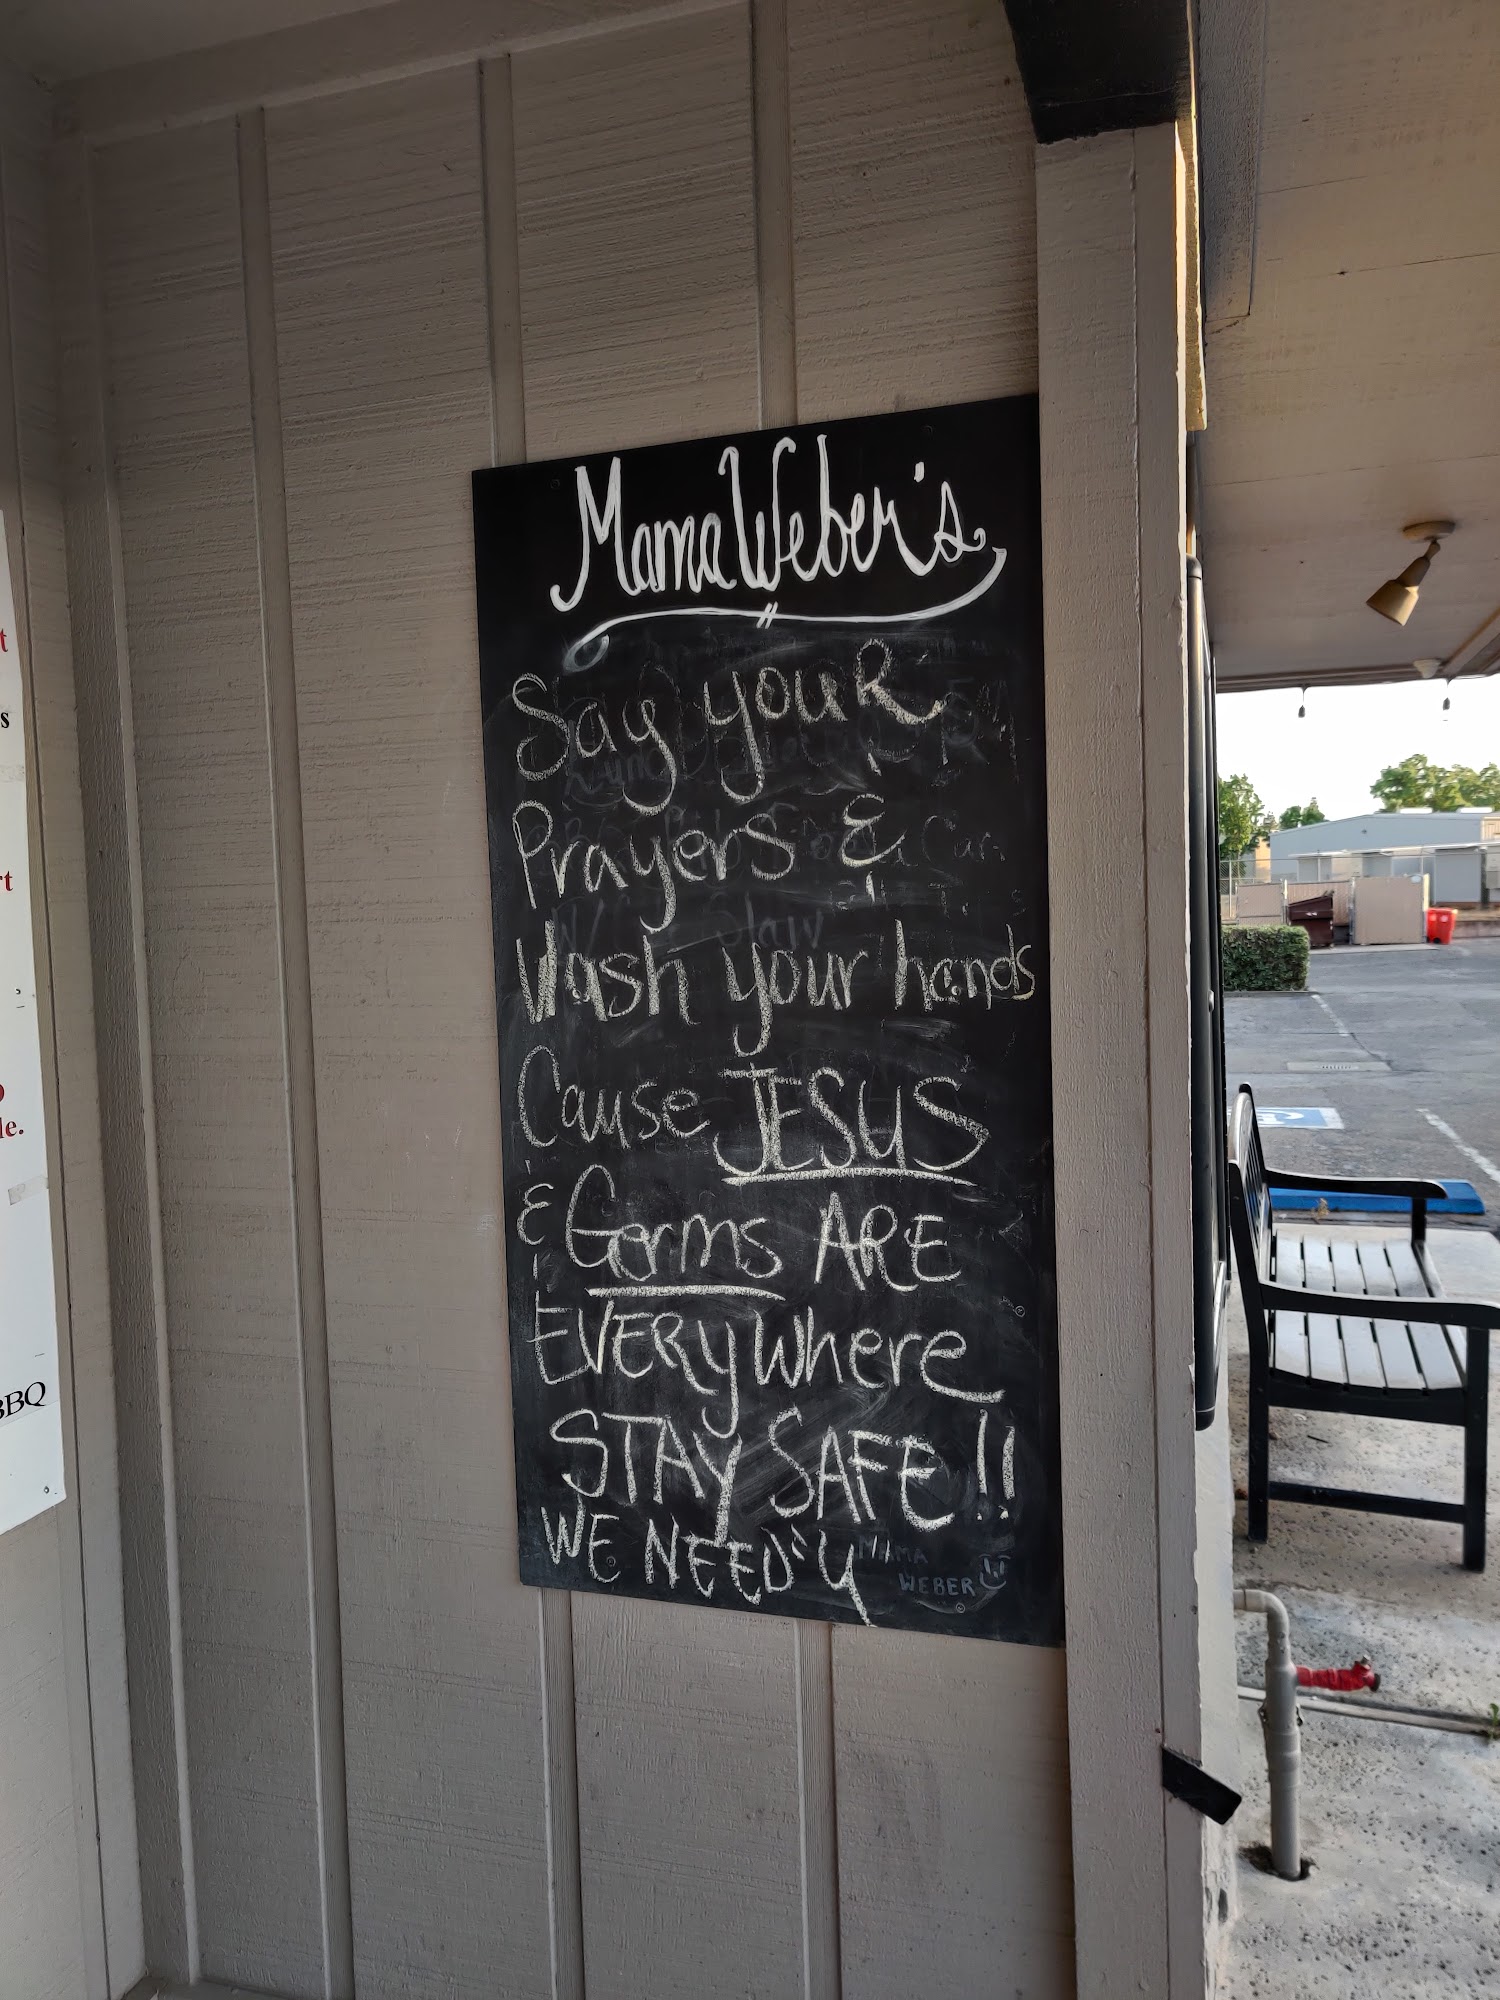 Mama Weber's
Say youR
Prayers &
Wash your hands
Cause JESUS
& Germs ARE
EVERywhere
STAY SAFE!!
WE NEED "U"
MAMA
WEBER
t
s
rt
le.
BBQ
Slaw